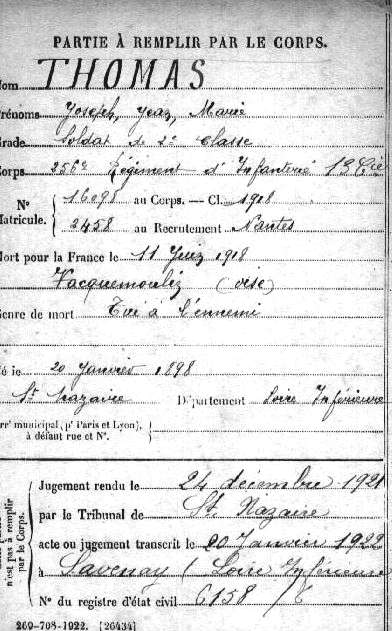 PARTIE À REMPLIR PAR LE CORPS.
Nom THOMAS
Prénoms Joseph, Jean, Marie
Grade Soldat de 2e Classe
Corps 256e Régiment d'Infanterie 13e Cie
N° 16098 au Corps. — Cl. 1918
Matricule. 2458 au Recrutement Nantes
Mort pour la France le 11 Juin 1918
Vacquemoulin (Oise)
Genre de mort Tué à l'ennemi
Né le 20 Janvier 1898
St Nazaire Département Loire Inférieure
Arrt municipal (pr Paris et Lyon),
à défaut rue et N°.
n'est pas à remplir
par le Corps.
Jugement rendu le 24 décembre 1921
par le Tribunal de St. Nazaire
acte ou jugement transcrit le 20 Janvier 1922
à Savenay (Loire Inférieure
N° du registre d'état civil 6158/
269-708-1922. [26434]